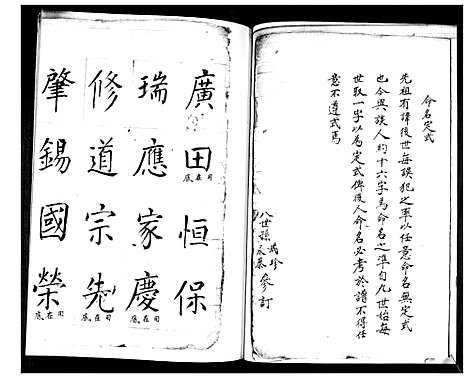 命名定式
先祖有諱後世每誤犯之率以任意命名無定式
也今與族人約十六字為命名之準自九世始每
世取一字以為定式俾後人命名必考於譜不得任
意不遵式焉
八世孫 參訂
廣田恒保
用在底
瑞應家慶
用在底
修道宗先
用在底
肇錫國榮
用在底